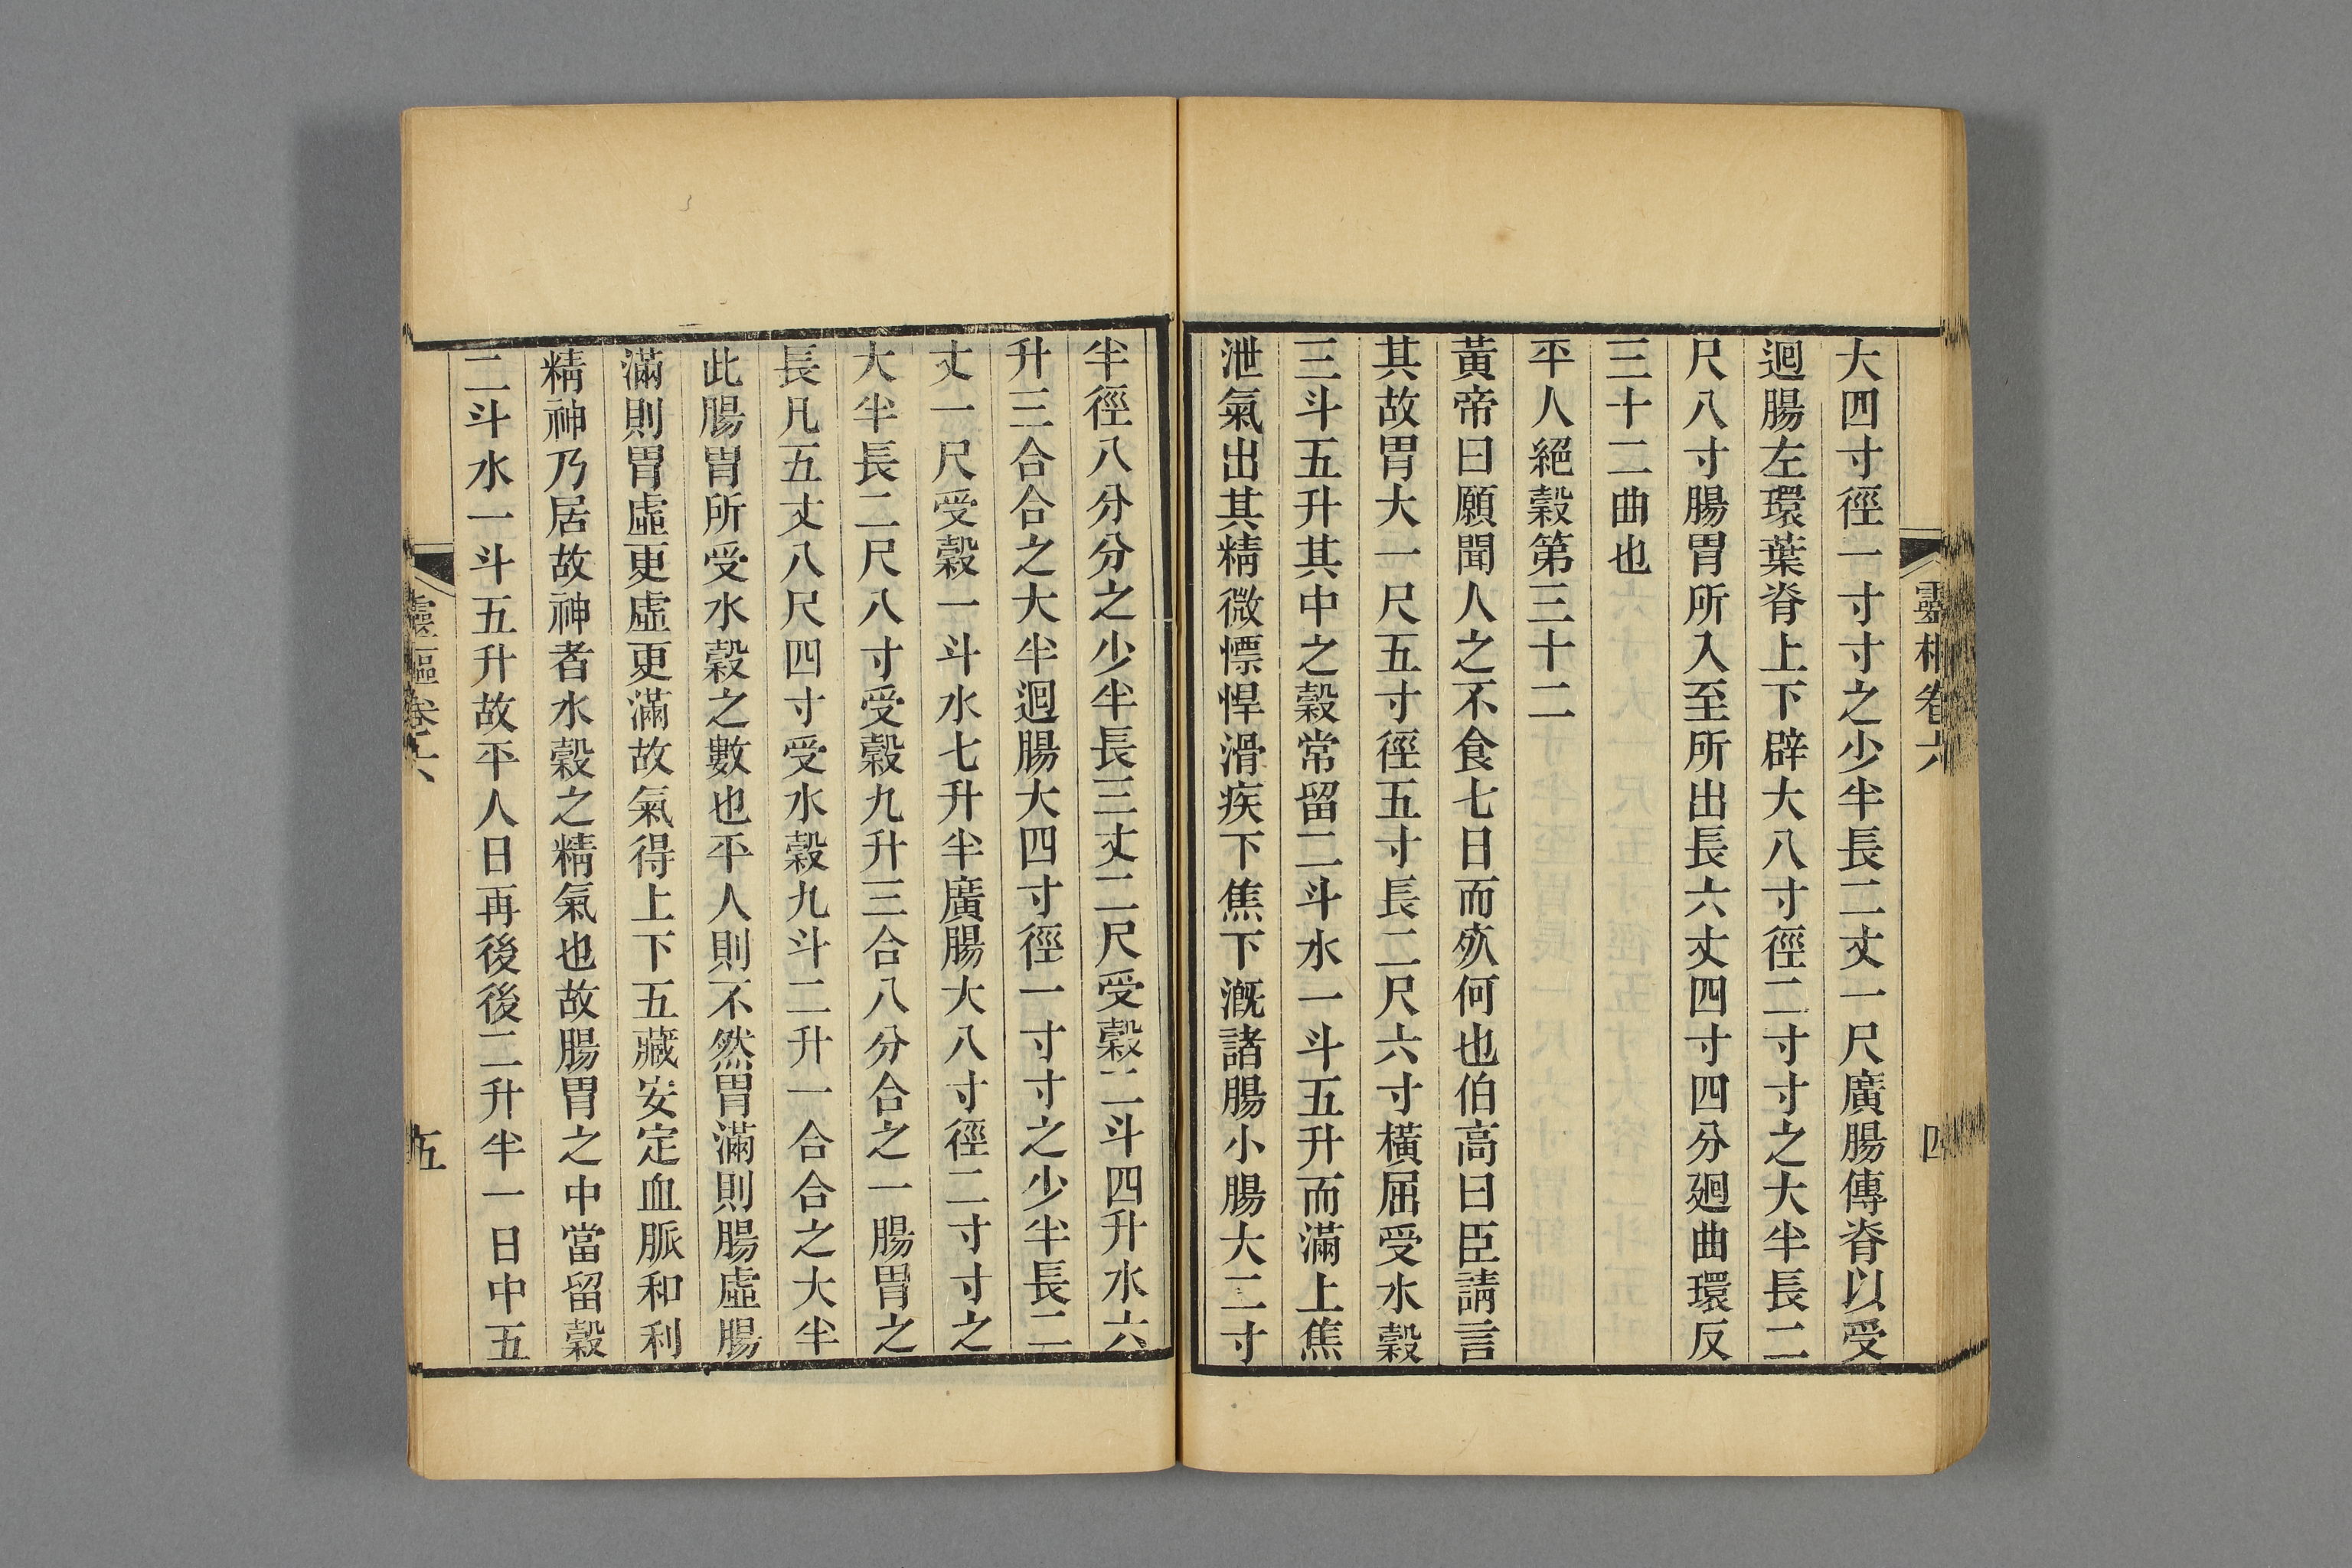 靈樞卷六
四
大四寸徑一寸寸之少半長二丈一尺廣腸傳脊以受
迴腸左環葉脊上下辟大八寸徑二寸寸之大半長二
尺八寸腸胃所入至所出長六丈四寸四分廻曲環反
三十二曲也
平人絕穀第三十二
黃帝曰願聞人之不食七日而死何也伯高曰臣請言
其故胃大一尺五寸徑五寸長二尺六寸橫屈受水穀
三斗五升其中之穀常留二斗水一斗五升而滿上焦
泄氣出其精微慓悍滑疾下焦下溉諸腸小腸大二寸
半徑八分分之少半長三丈二尺受穀二斗四升水六
升三合合之大半迴腸大四寸徑一寸寸之少半長二
丈一尺受穀一斗水七升半廣腸大八寸徑二寸寸之
大半長二尺八寸受穀九升三合八分合之一腸胃之
長凡五丈八尺四寸受水穀九斗二升一合合之大半
此腸胃所受水穀之數也平人則不然胃滿則腸虛腸
滿則胃虛更虛更滿故氣得上下五藏安定血脈和利
精神乃居故神者水穀之精氣也故腸胃之中當留穀
二斗水一斗五升故平人日再後後二升半一日中五
靈樞卷六
五